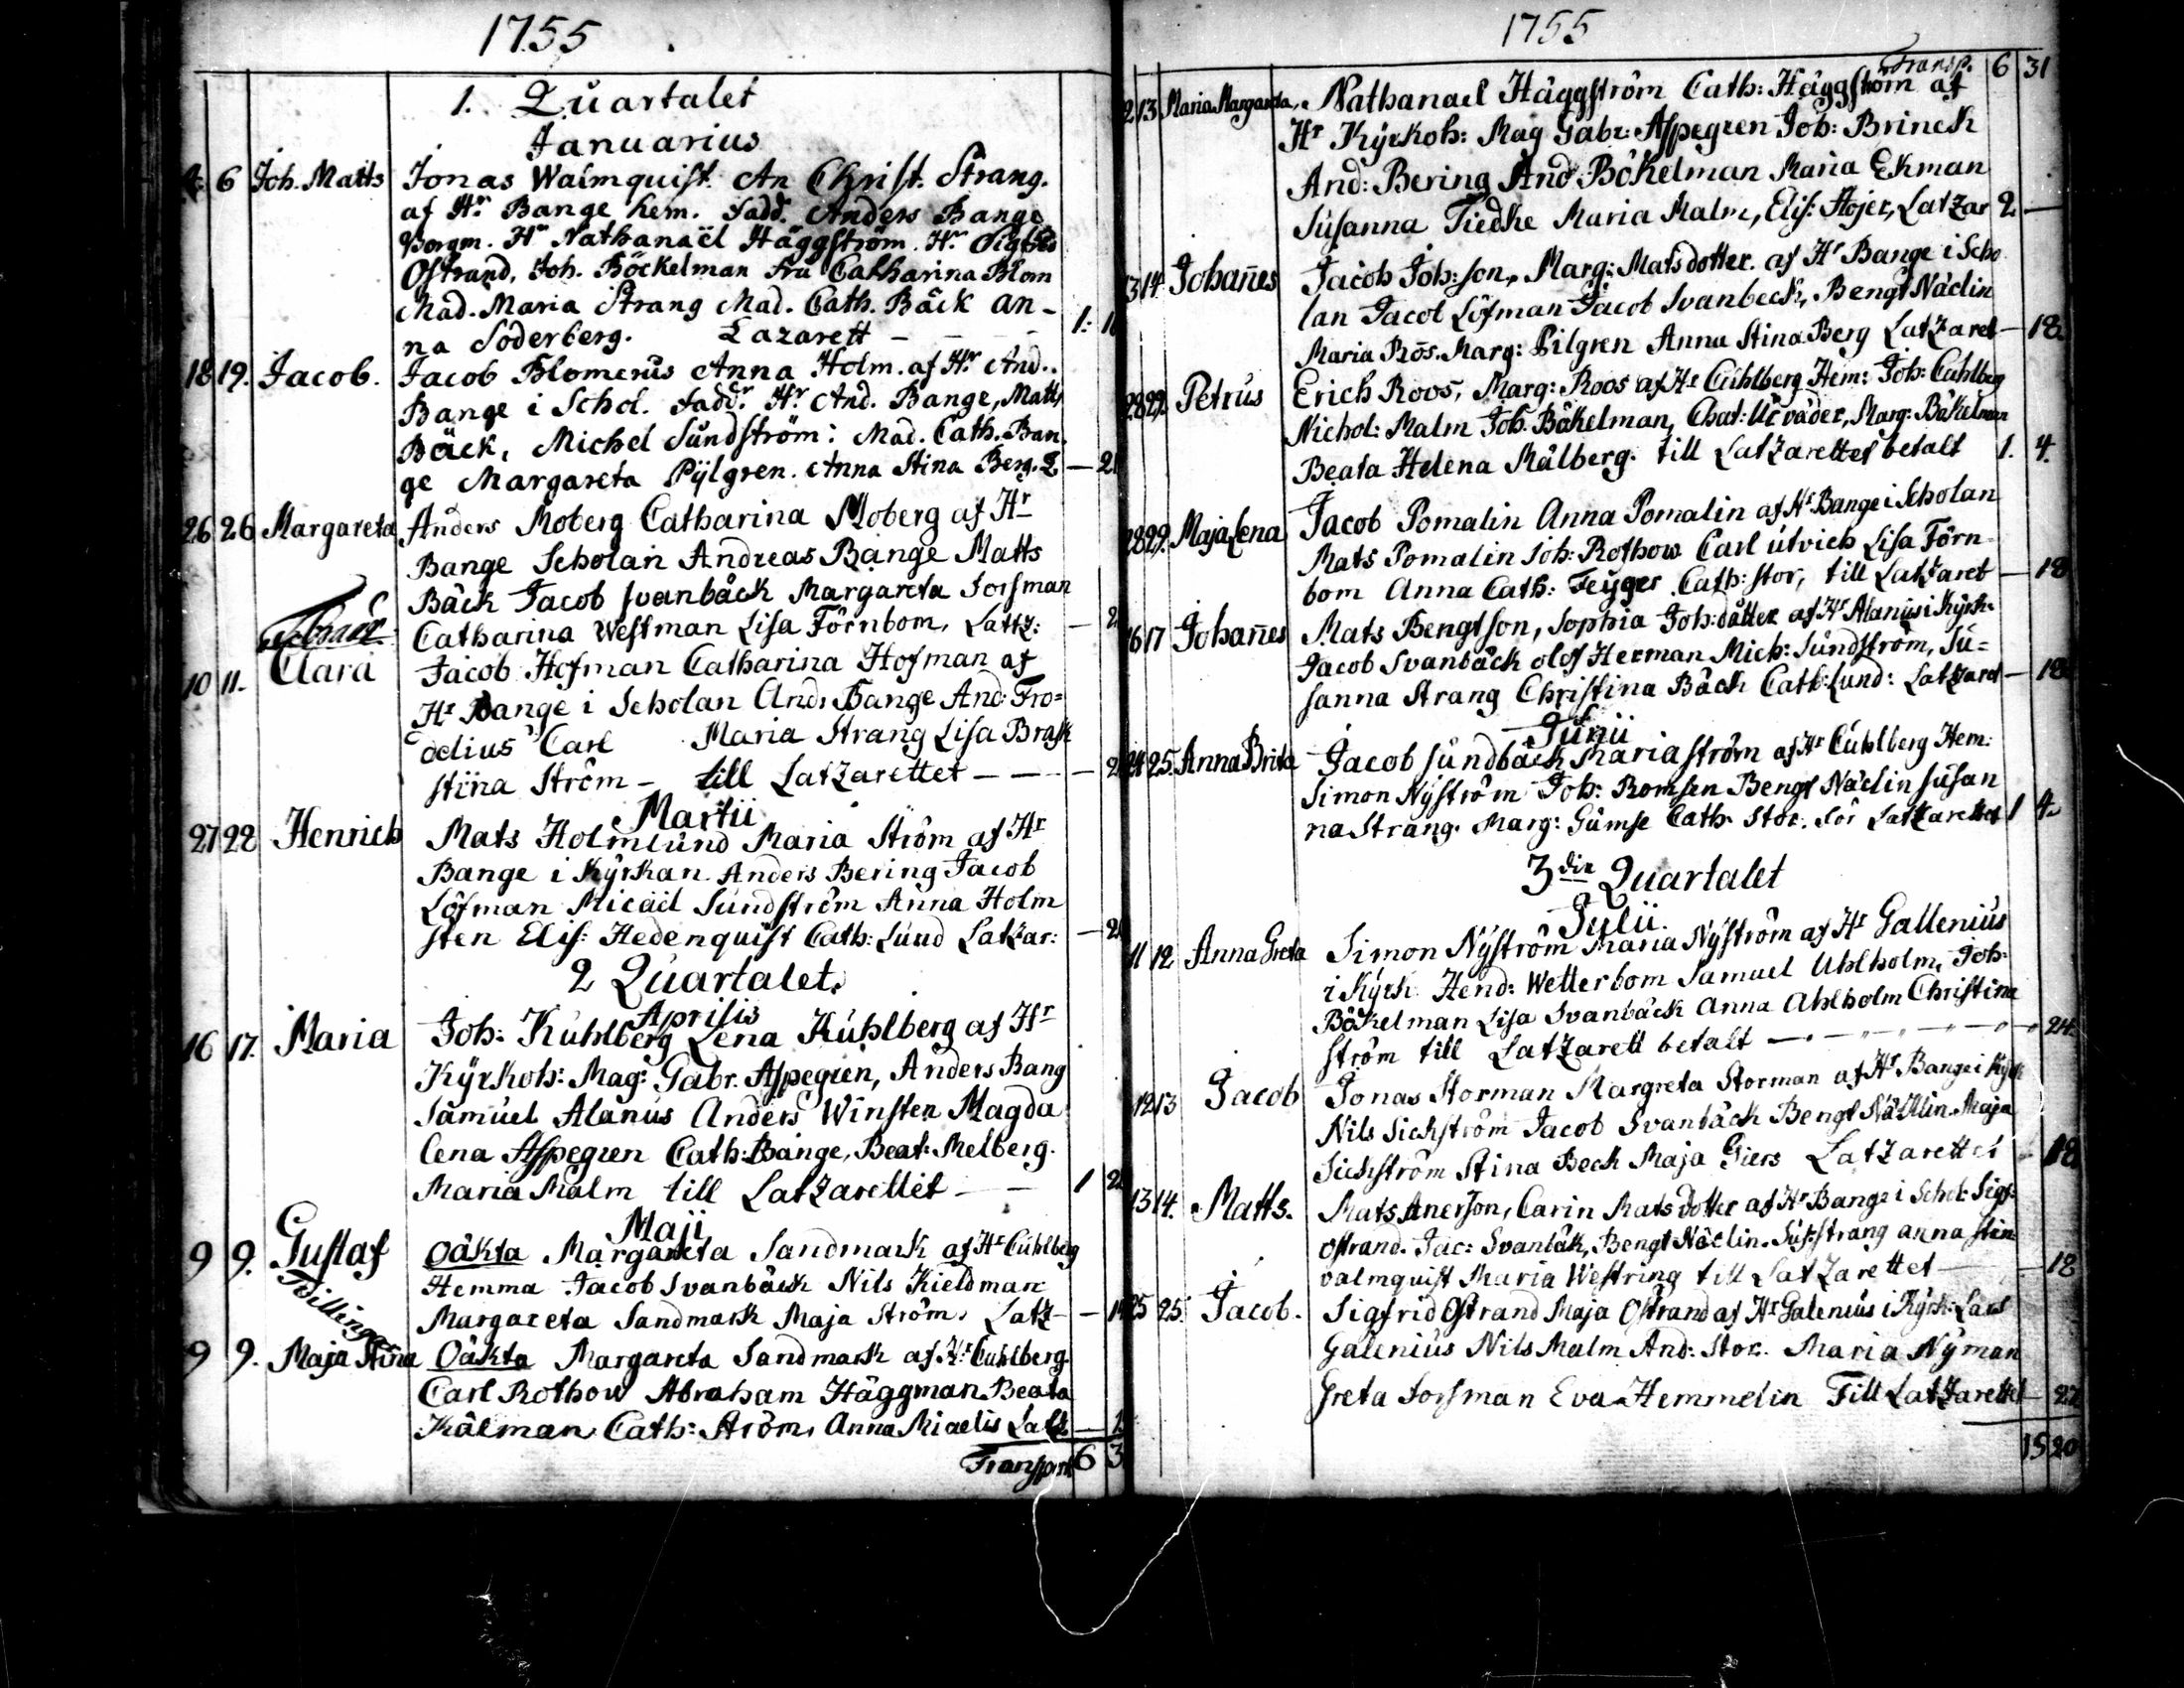 1755
1. Quartalet
Januarius
6 Joh. Matts Jonas Walmquist. An Christ. Strang.
af Hr. Bange hem. fadd. Anders Bange
Borgm. Hr Nathanaël Häggström. Hr. Sigfrid
Ostrand, Joh. Böckelman fru Catharina Blom
Mad. Maria Strang Mad. Cath. Bäck an-
na Söderberg. Lazarett - - - 1:
18 19. Jacob. Jacob Blomerus Anna Holm. af Hr. And.
Bange i Schol. fadd.r Hr. And. Bange, Matts
Bäck, Michel Sundström: Mad. Cath. Ban-
ge Margareta Pÿlgren. Anna Stina Berg. L —
26 26 Margareta Anders Moberg Catharina Moberg af Hr
Bange Scholan Andreas Bange Matts
Bäck Jacob Svanbäck Margareta Forsman
Februar: Catharina Westman Lisa Förnbom, Lattz: —
10 11. Clara Jacob Hofman Catharina Hofman af
Hr Bange i Scholan And: Bange And: Fro=
delius Carl Maria Strang Lisa Brask
stina Ström - till Latzarettet — — —
Martii
27 22 Henrich Mats Holmlund Maria Ström af Hr
Bange i Kÿrkan. Anders Bering Jacob
Löfman Micaël Sundström Anna Holm
sten Elis: Hedenquist Cath: Lund Latzar: —
2 Quartalet.
Aprilis
16 17. Maria Joh: Kuhlberg Lena Kuhlberg af Hr
Kÿrkoh: Mag: Gabr. Aspegren, Anders Bang
Samuel Alanus Anders Winsten Magda
lena Aspegren Cath: Bange, Beat: Melberg.
Maria Malm till Latzarettet — 1
Maji
9 9. Gustaf Oäkta Margareta Sandmark af Hr Cuhlberg
Hemma Jacob Svanbäck Nils Kieldman
Tvillingar Margareta Sandmark Maja Ström, Latz —
9 9. Maja Stina Oäkta Margareta Sandmark af Hr Cuhlberg
Carl Rothow Abraham Häggman Beata
Kälman Cath: Ström, Anna Miaelis Latz —
Transport 6 3
1755
Transp. 6 31
13 Maria Margareta, Nathanael Häggström Cath: Häggström af
Hr Kÿrkoh: Mag Gabr: Aspegren Joh: Brinck
And: Bering And Bökelman Maria Ekman
Susanna Tiedke Maria Malm, Elis: Höjer, Latzar 2 —
13 14. Johañes Jacob Joh:son, Marg: Matsdotter. af Hr Bange i Scho
lan Jacob Löfman Jacob Svanbeck, Bengt Näclin
Maria Ros. Marg: Pilgren Anna Stina Berg Latzaret — 18
28 29. Petrus Erich Roos, Marg: Roos af Hr Cuhlberg Hem: Joh: Cuhlberg
Nichol: Malm Joh. Bökelman, Marg: Bökelman
Beata Helena Mälberg. till Latzarettet betalt 1. 4.
28 29. Maja Lena Jacob Pomalin Anna Pomalin af Hr Bange i Scholan
Mats Pomalin Joh: Rothow Carl utvich Lisa Förn-
bom Anna Cath: Feÿger Cath: stor, till Latzaret — 18
16 17 Johañes Mats Bengtson, Sophia Joh:dåtter af Hr Alanus i Kÿrk
Jacob Svanbäck olof Herman Mich: Sundström, Su=
sanna Strang Christina Bäck Cath: Lund: Latzaret — 18
Junii
24 25. Anna Brita Jacob Sundbäck Maria Ström af Hr Cuhlberg Hem:
Simon Nÿström Joh: Romsen Bengt Näclin Susan
na Strang. Marg: Gumse Cath. Stor. för Latzarettet 1 4
3die Quartalet
Julii.
11 12 Anna Greta Simon Nÿström Maria Nÿström af Hr Gallenius
i Kÿrk: Hend: Wetterbom Samuel Uhlholm, Joh:
Bökelman Lisa Svanbäck Anna Ahlholm Christina
ström till Latzarett betalt — — — 24.
12 13 Jacob Jonas Storman Margreta Storman af Hr Bange i Kÿrk
Nils Sickström Jacob Svanbäck Bengt Näcklin. Maja
Sickström Stina Beck Maja Giers Latzarettet 18
13 14. Matts. Mats Anerson, Carin Matsdotter af Hr Bange i Schol: Sigf:
Ostrand. Jac: Svanbäk, Bengt Näclin. Sus: strang anna stin
valmquist Maria Westring till Latzarettet — 18
25 25. Jacob. Sigfrid Ostrand Maja Ostrand af Hr Galenius i Kÿrk: Lars
Galenius Nils Malm And: Stor. Maria Nÿman
Greta Forsman Eva Hemmelin Till Latzarettet — 27
15 20